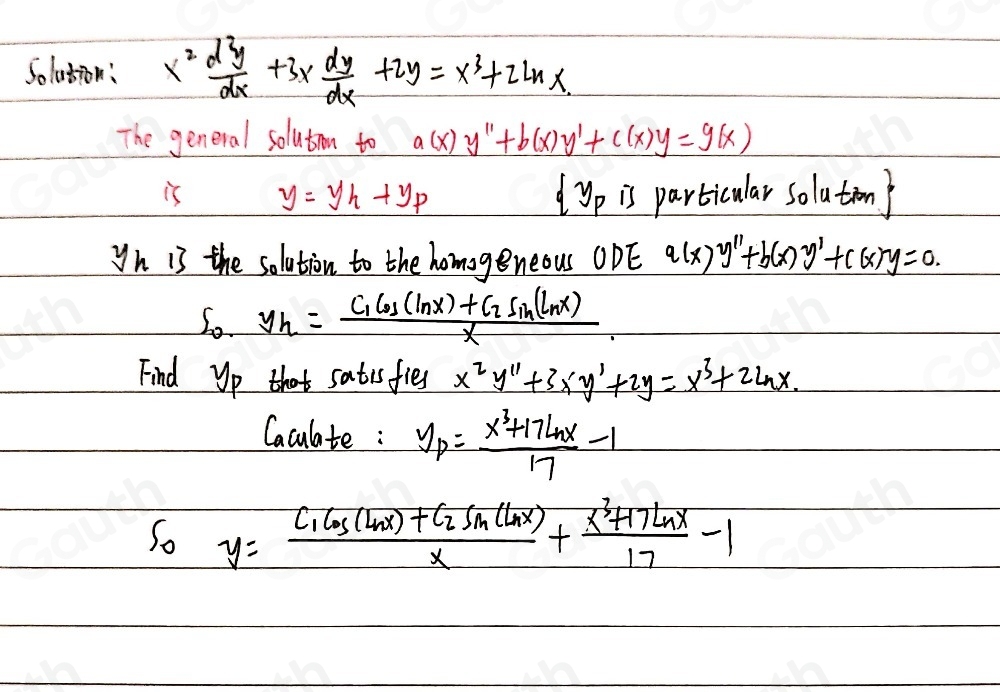 Solution: x² d²y/dx + 3x dy/dx + 2y = x³ + 2lnx.
The general solution to a(x)y" + b(x)y' + c(x)y = g(x)
is y = yh + yp {yp is particular solution}
yh is the solution to the homogeneous ODE a(x)y" + b(x)y' + c(x)y = 0.
So. yh = (C₁cos(lnx) + C₂sin(lnx))/x.
Find yp that satisfies x²y" + 3xy' + 2y = x³ + 2lnx.
Caculate : yp = (x³ + 17lnx)/17 - 1
So y = (C₁cos(lnx) + C₂sin(lnx))/x + (x³ + 17lnx)/17 - 1